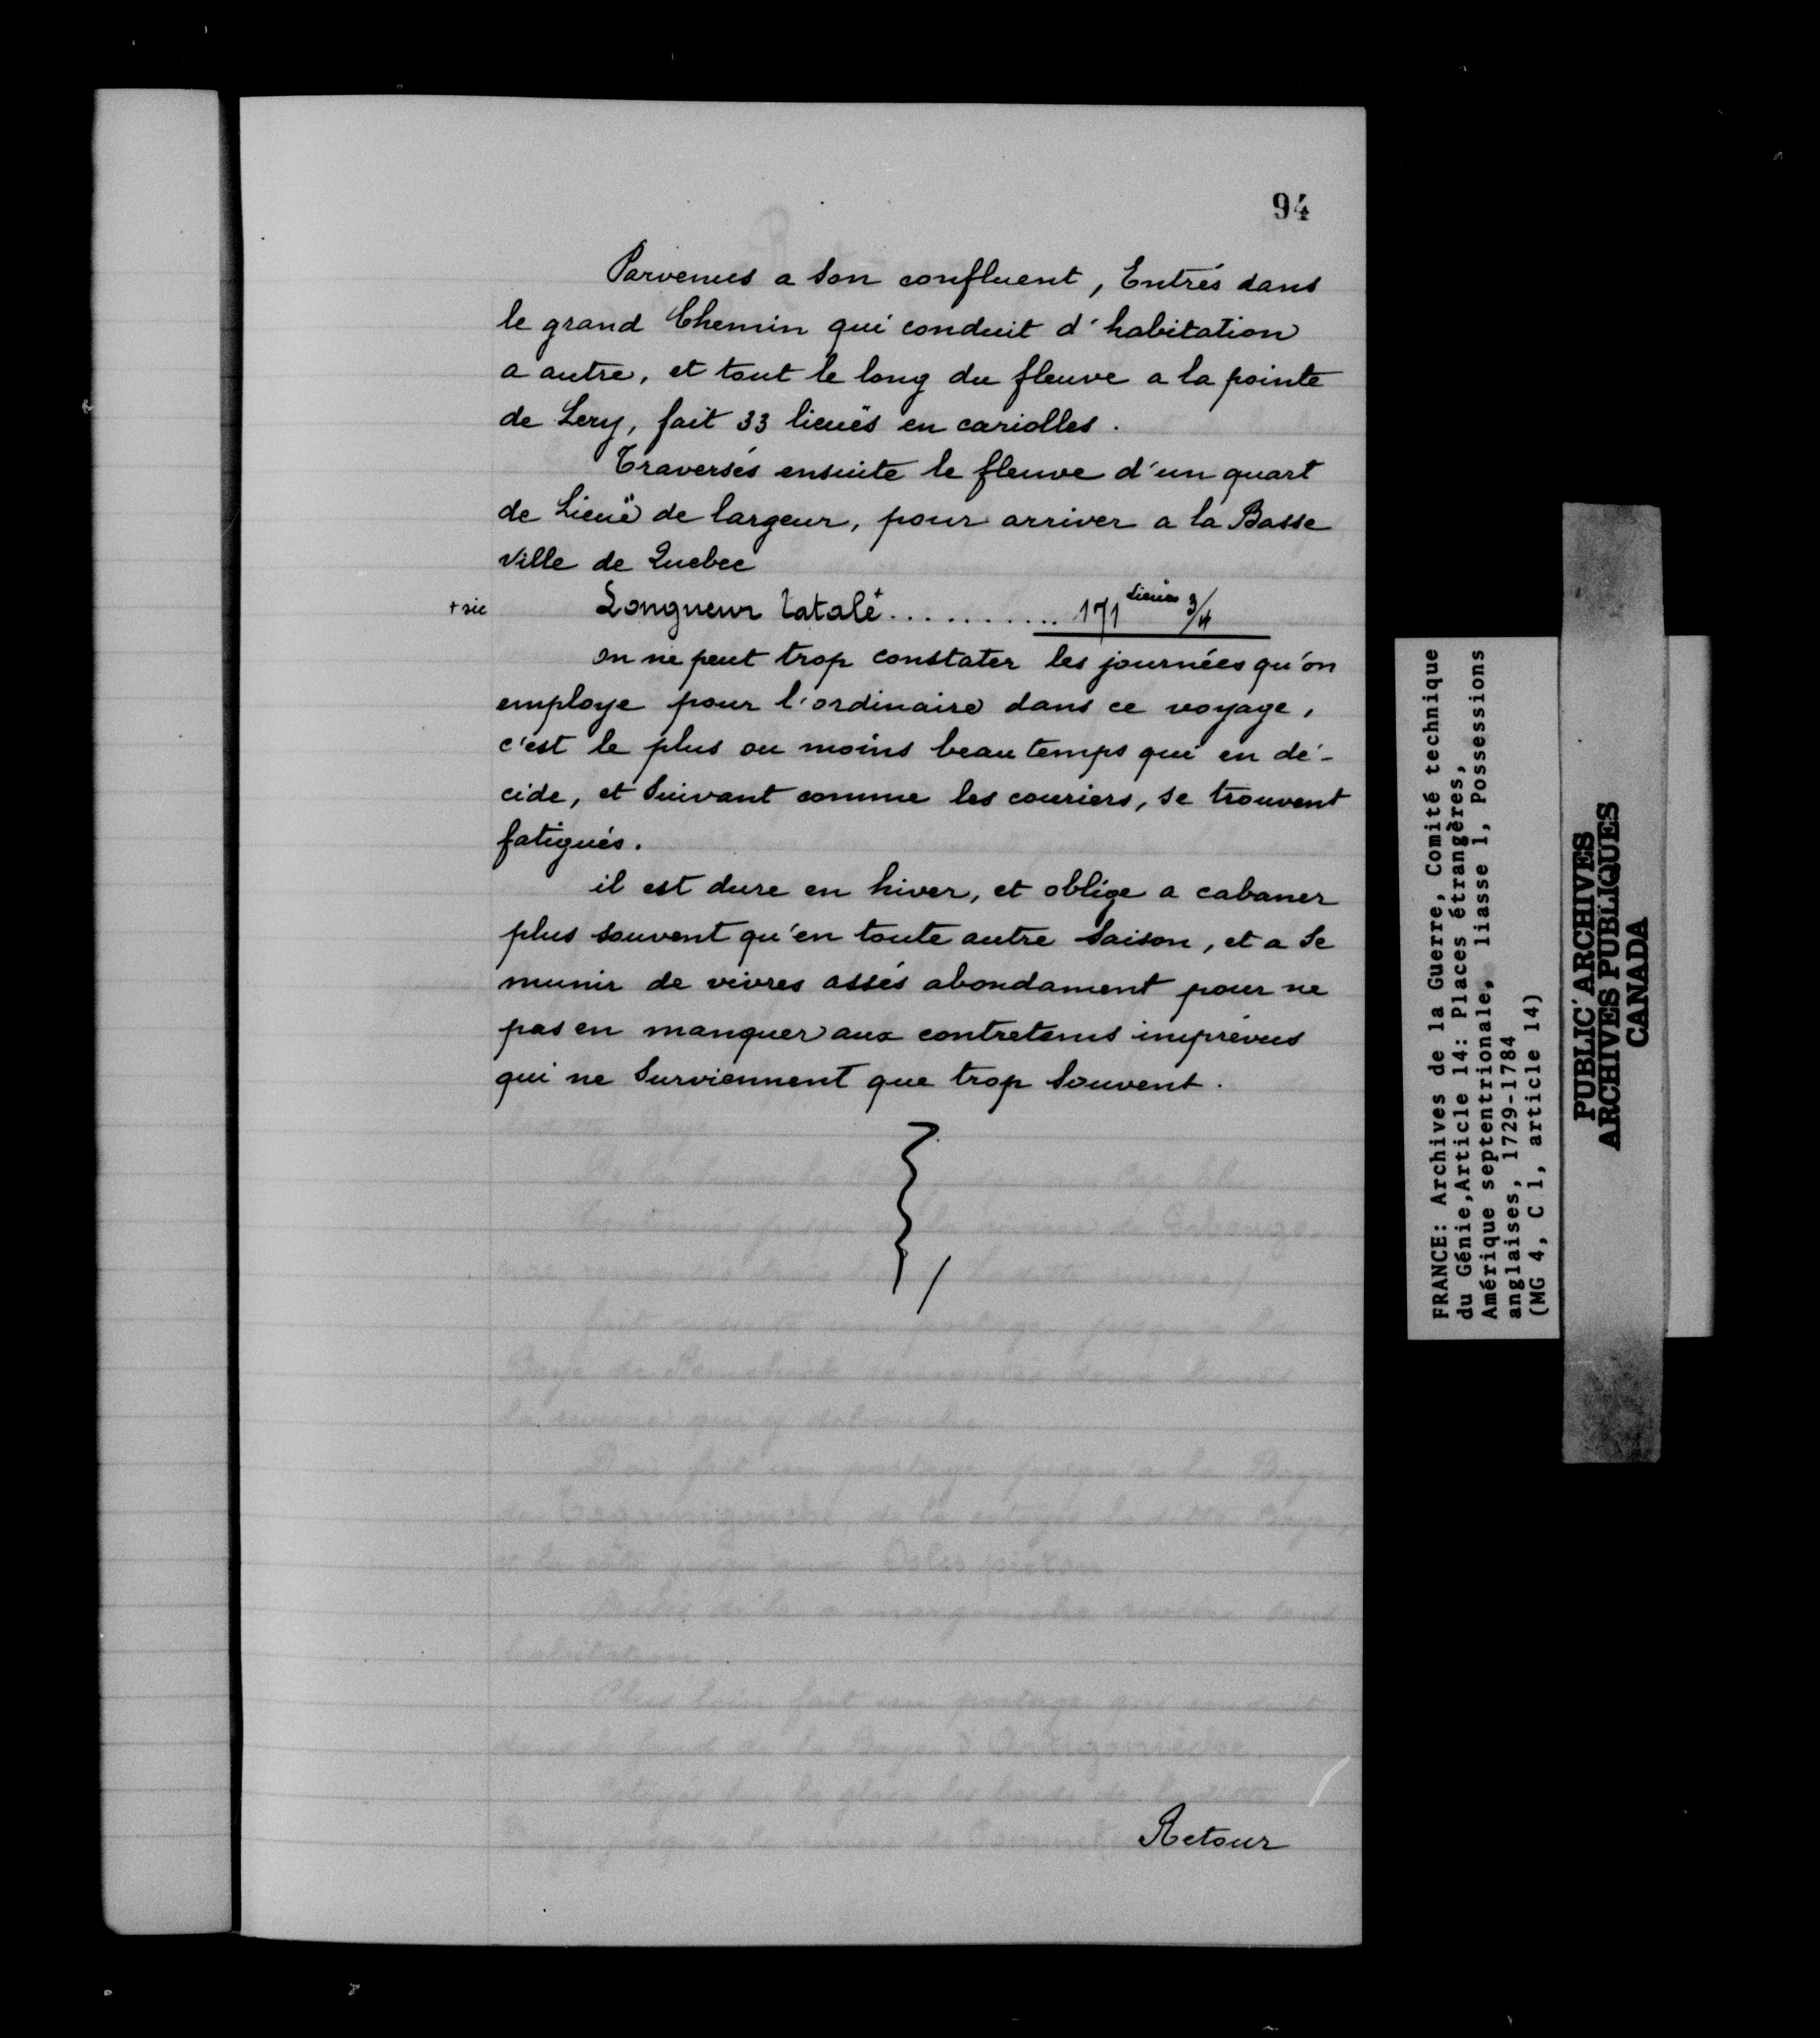 94
Parvenus a Son confluent, Entrés dans
le grand Chemin qui conduit d'habitation
a autre, et tout le long du fleuve a la pointe
de Lery, fait 33 lieuës en cariolles.
Traversés ensuite le fleuve d'un quart
de Lieuë de largeur, pour arriver a la Basse
Ville de Quebec
+ sic Longueur tatale+........... 171 Lieues 3/4
on ne peut trop constater les journées qu'on
employe pour l'ordinaire dans ce voyage,
c'est le plus ou moins beau temps qui en dé-
cide, et Suivant comme les couriers, se trouvent
fatigués.
il est dure en hiver, et oblige a cabaner
plus souvent qu'en toute autre Saison, et a Se
munir de vivres assés abondament pour ne
pas en manquer aux contretems imprévus
qui ne Surviennent que trop Souvent.
Retour
FRANCE: Archives de la Guerre, Comité technique
du Génie, Article 14: Places étrangères,
Amérique septentrionale, liasse 1, Possessions
anglaises, 1729-1784
(MG 4, C 1, article 14)
PUBLIC ARCHIVES
ARCHIVES PUBLIQUES
CANADA